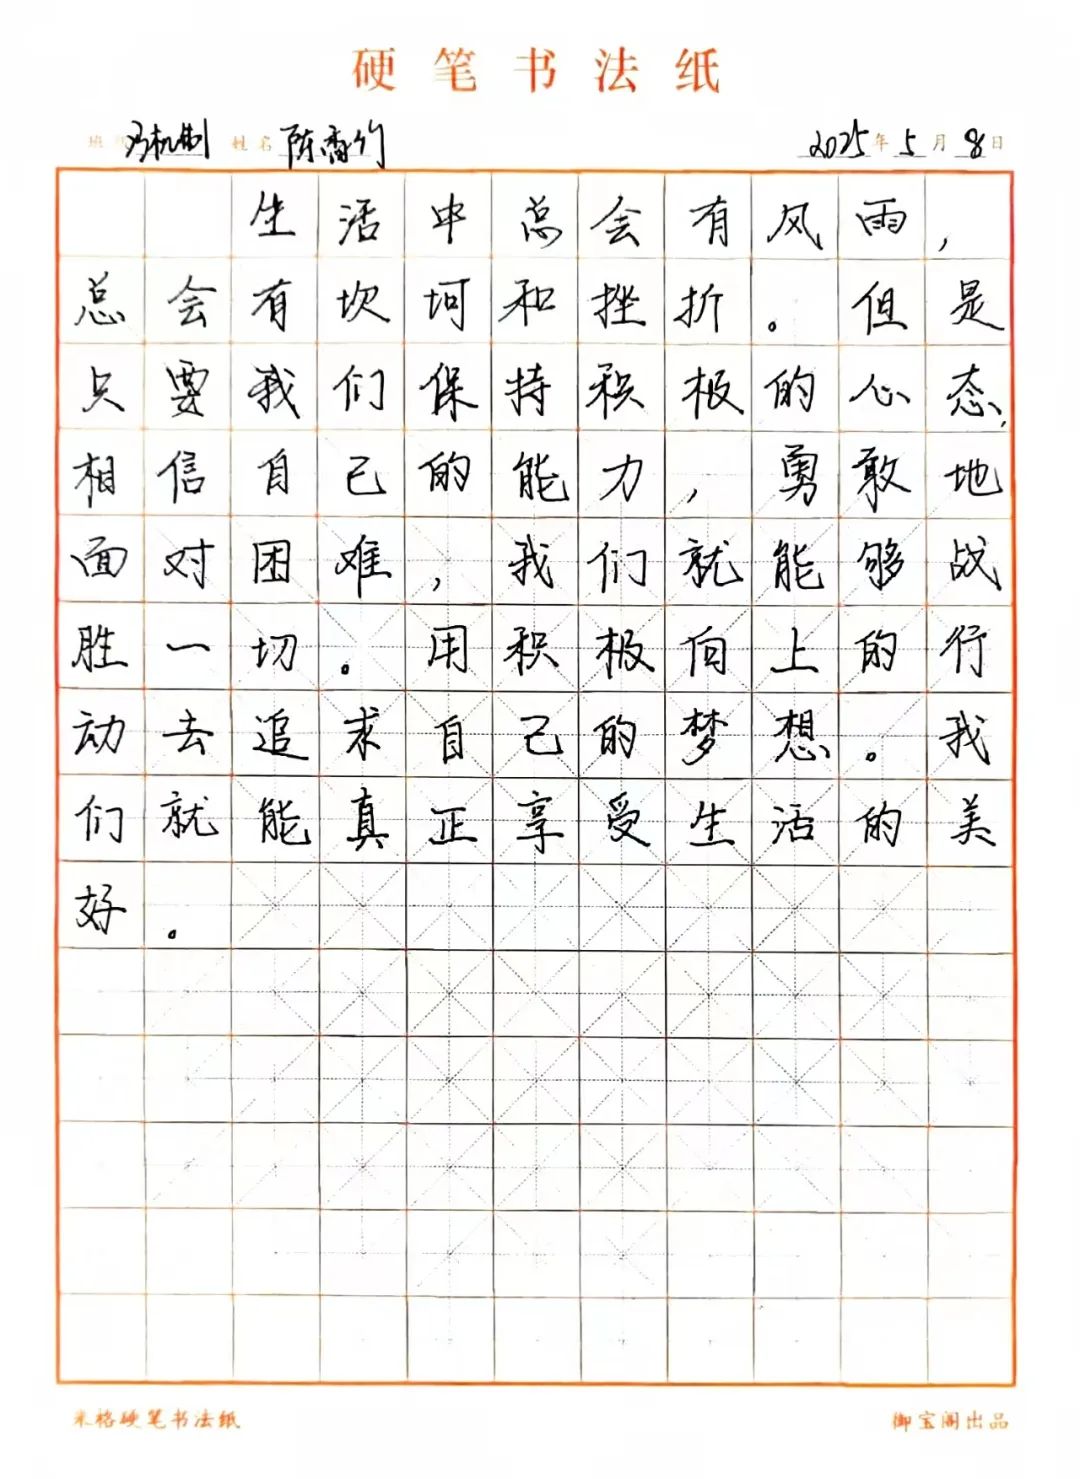 硬笔书法纸
班 机制 姓名 陈 竹 2025年5月8日
生活中总会有风雨，
总会有坎坷和挫折。但是
只要我们保持积极的心态，
相信自己的能力，勇敢地
面对困难，我们就能够战
胜一切。用积极向上的行
动去追求自己的梦想。我
们就能真正享受生活的美
好。
米格硬笔书法纸 御宝阁出品